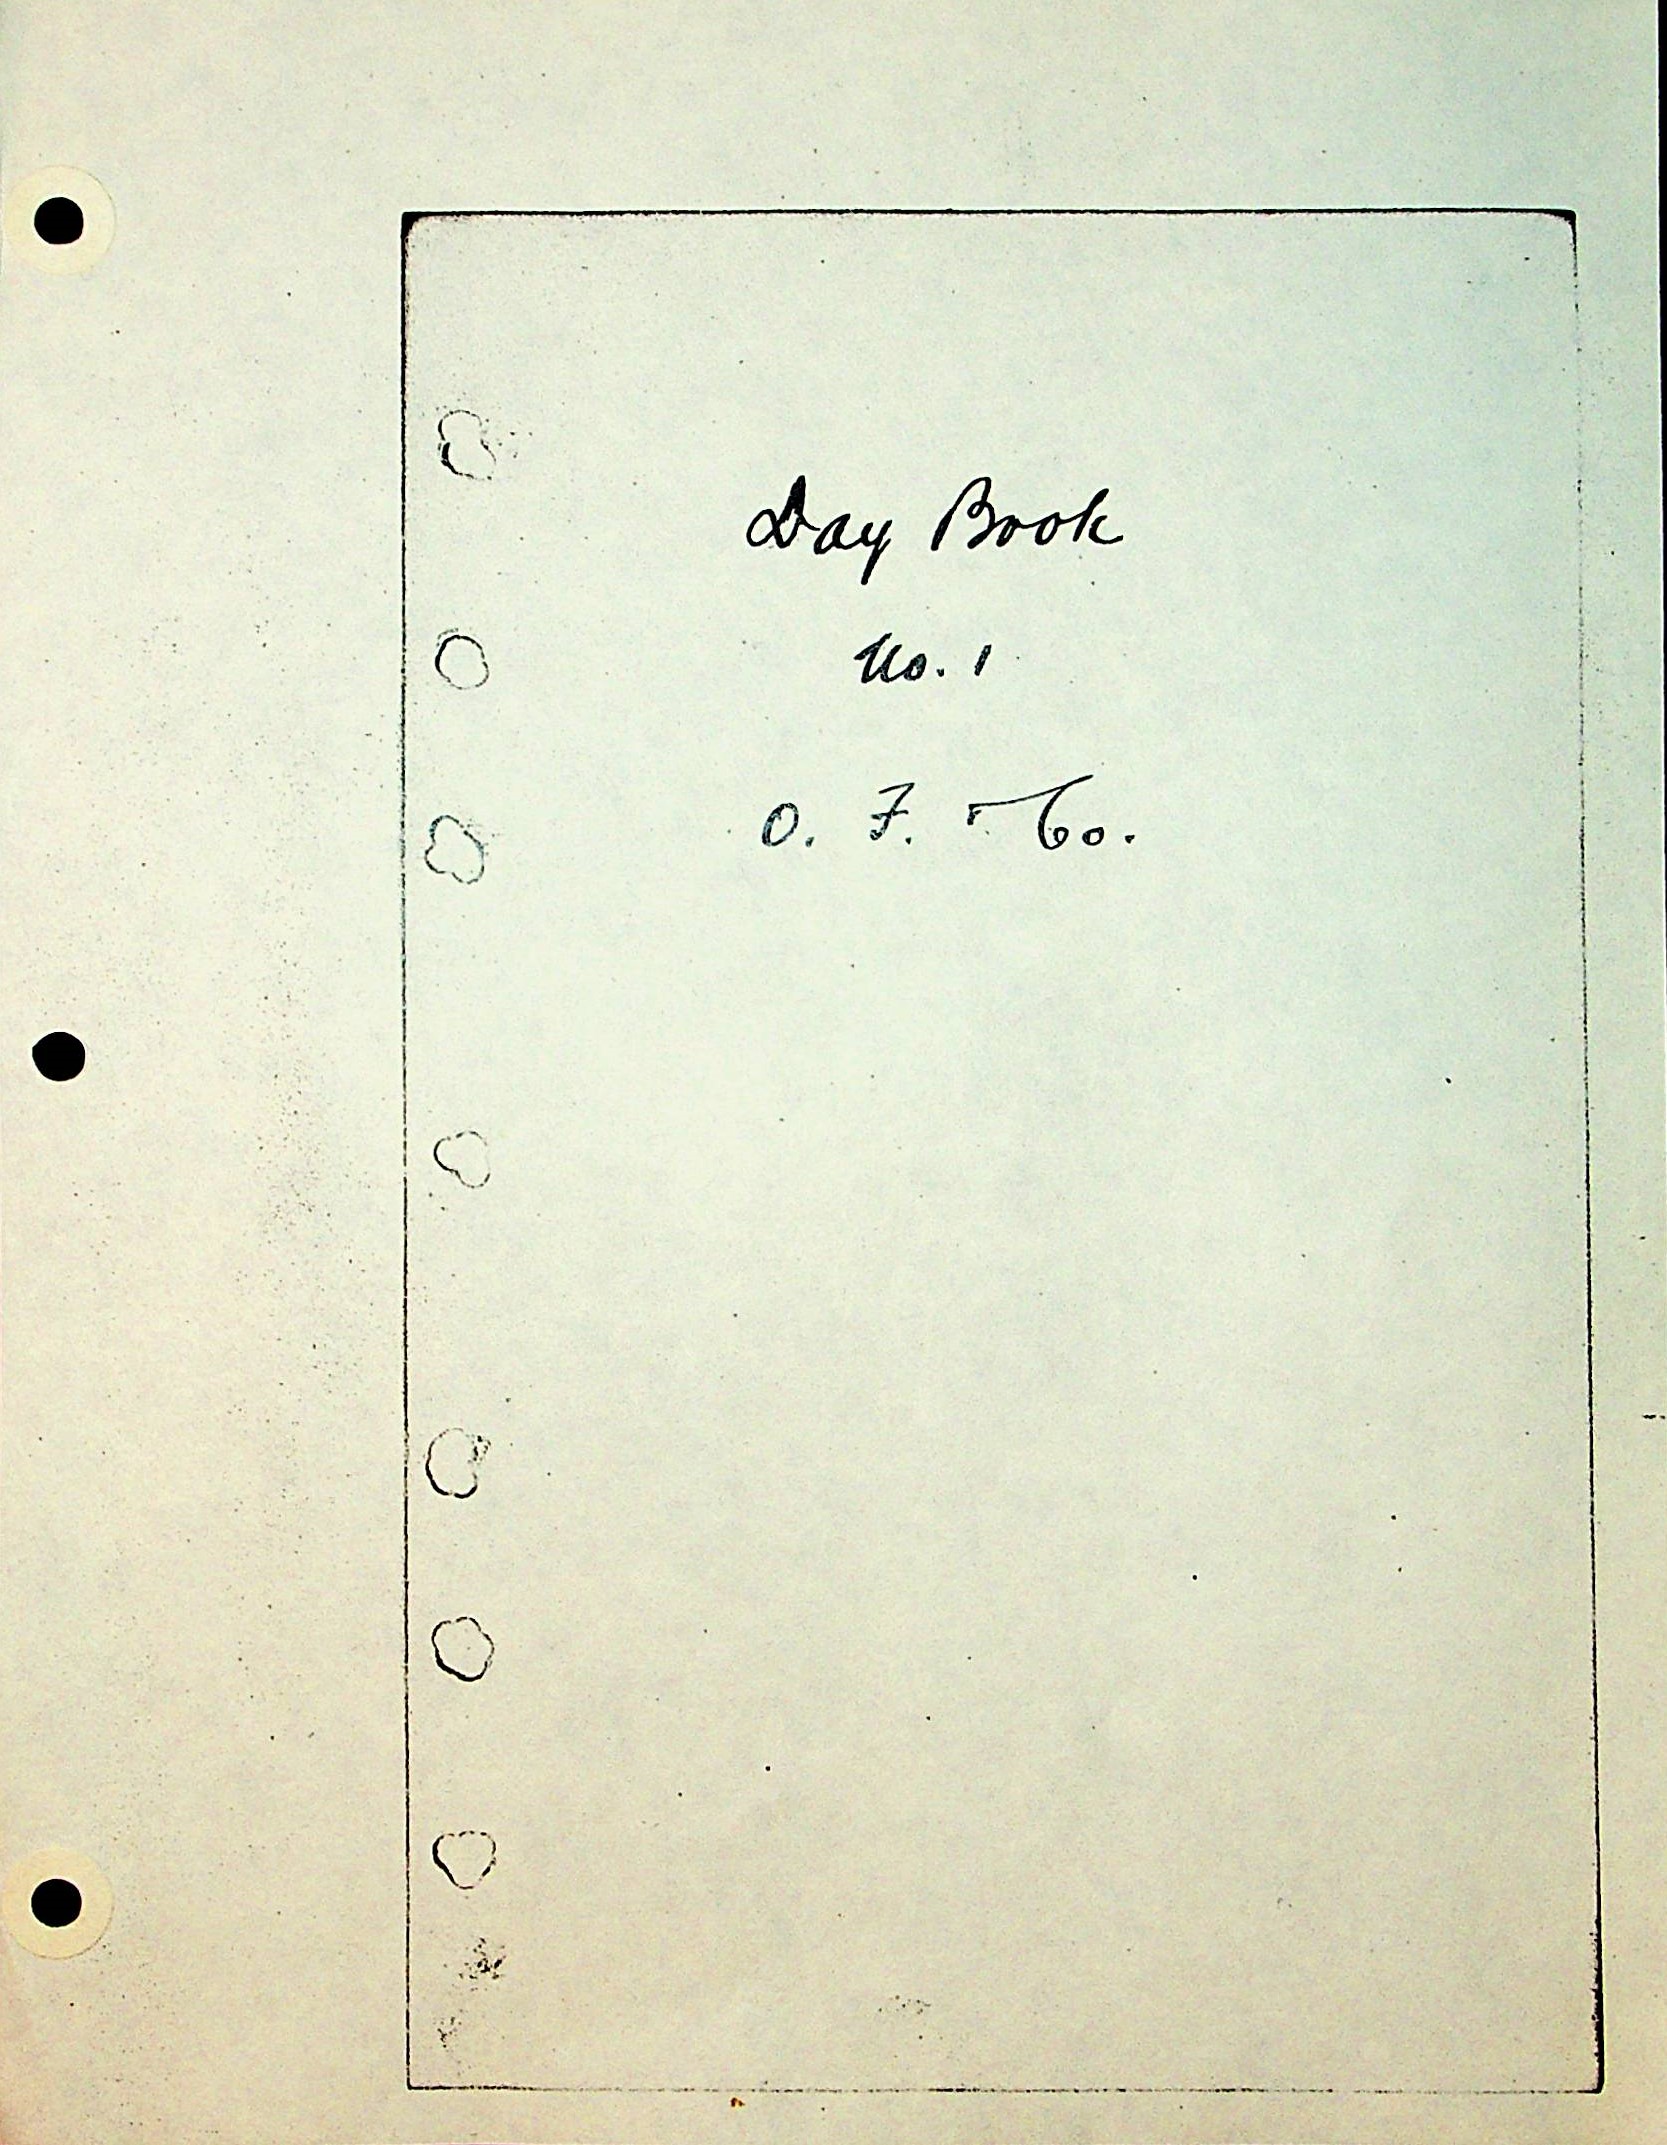 Day Book
No. 1
O. F. Co.